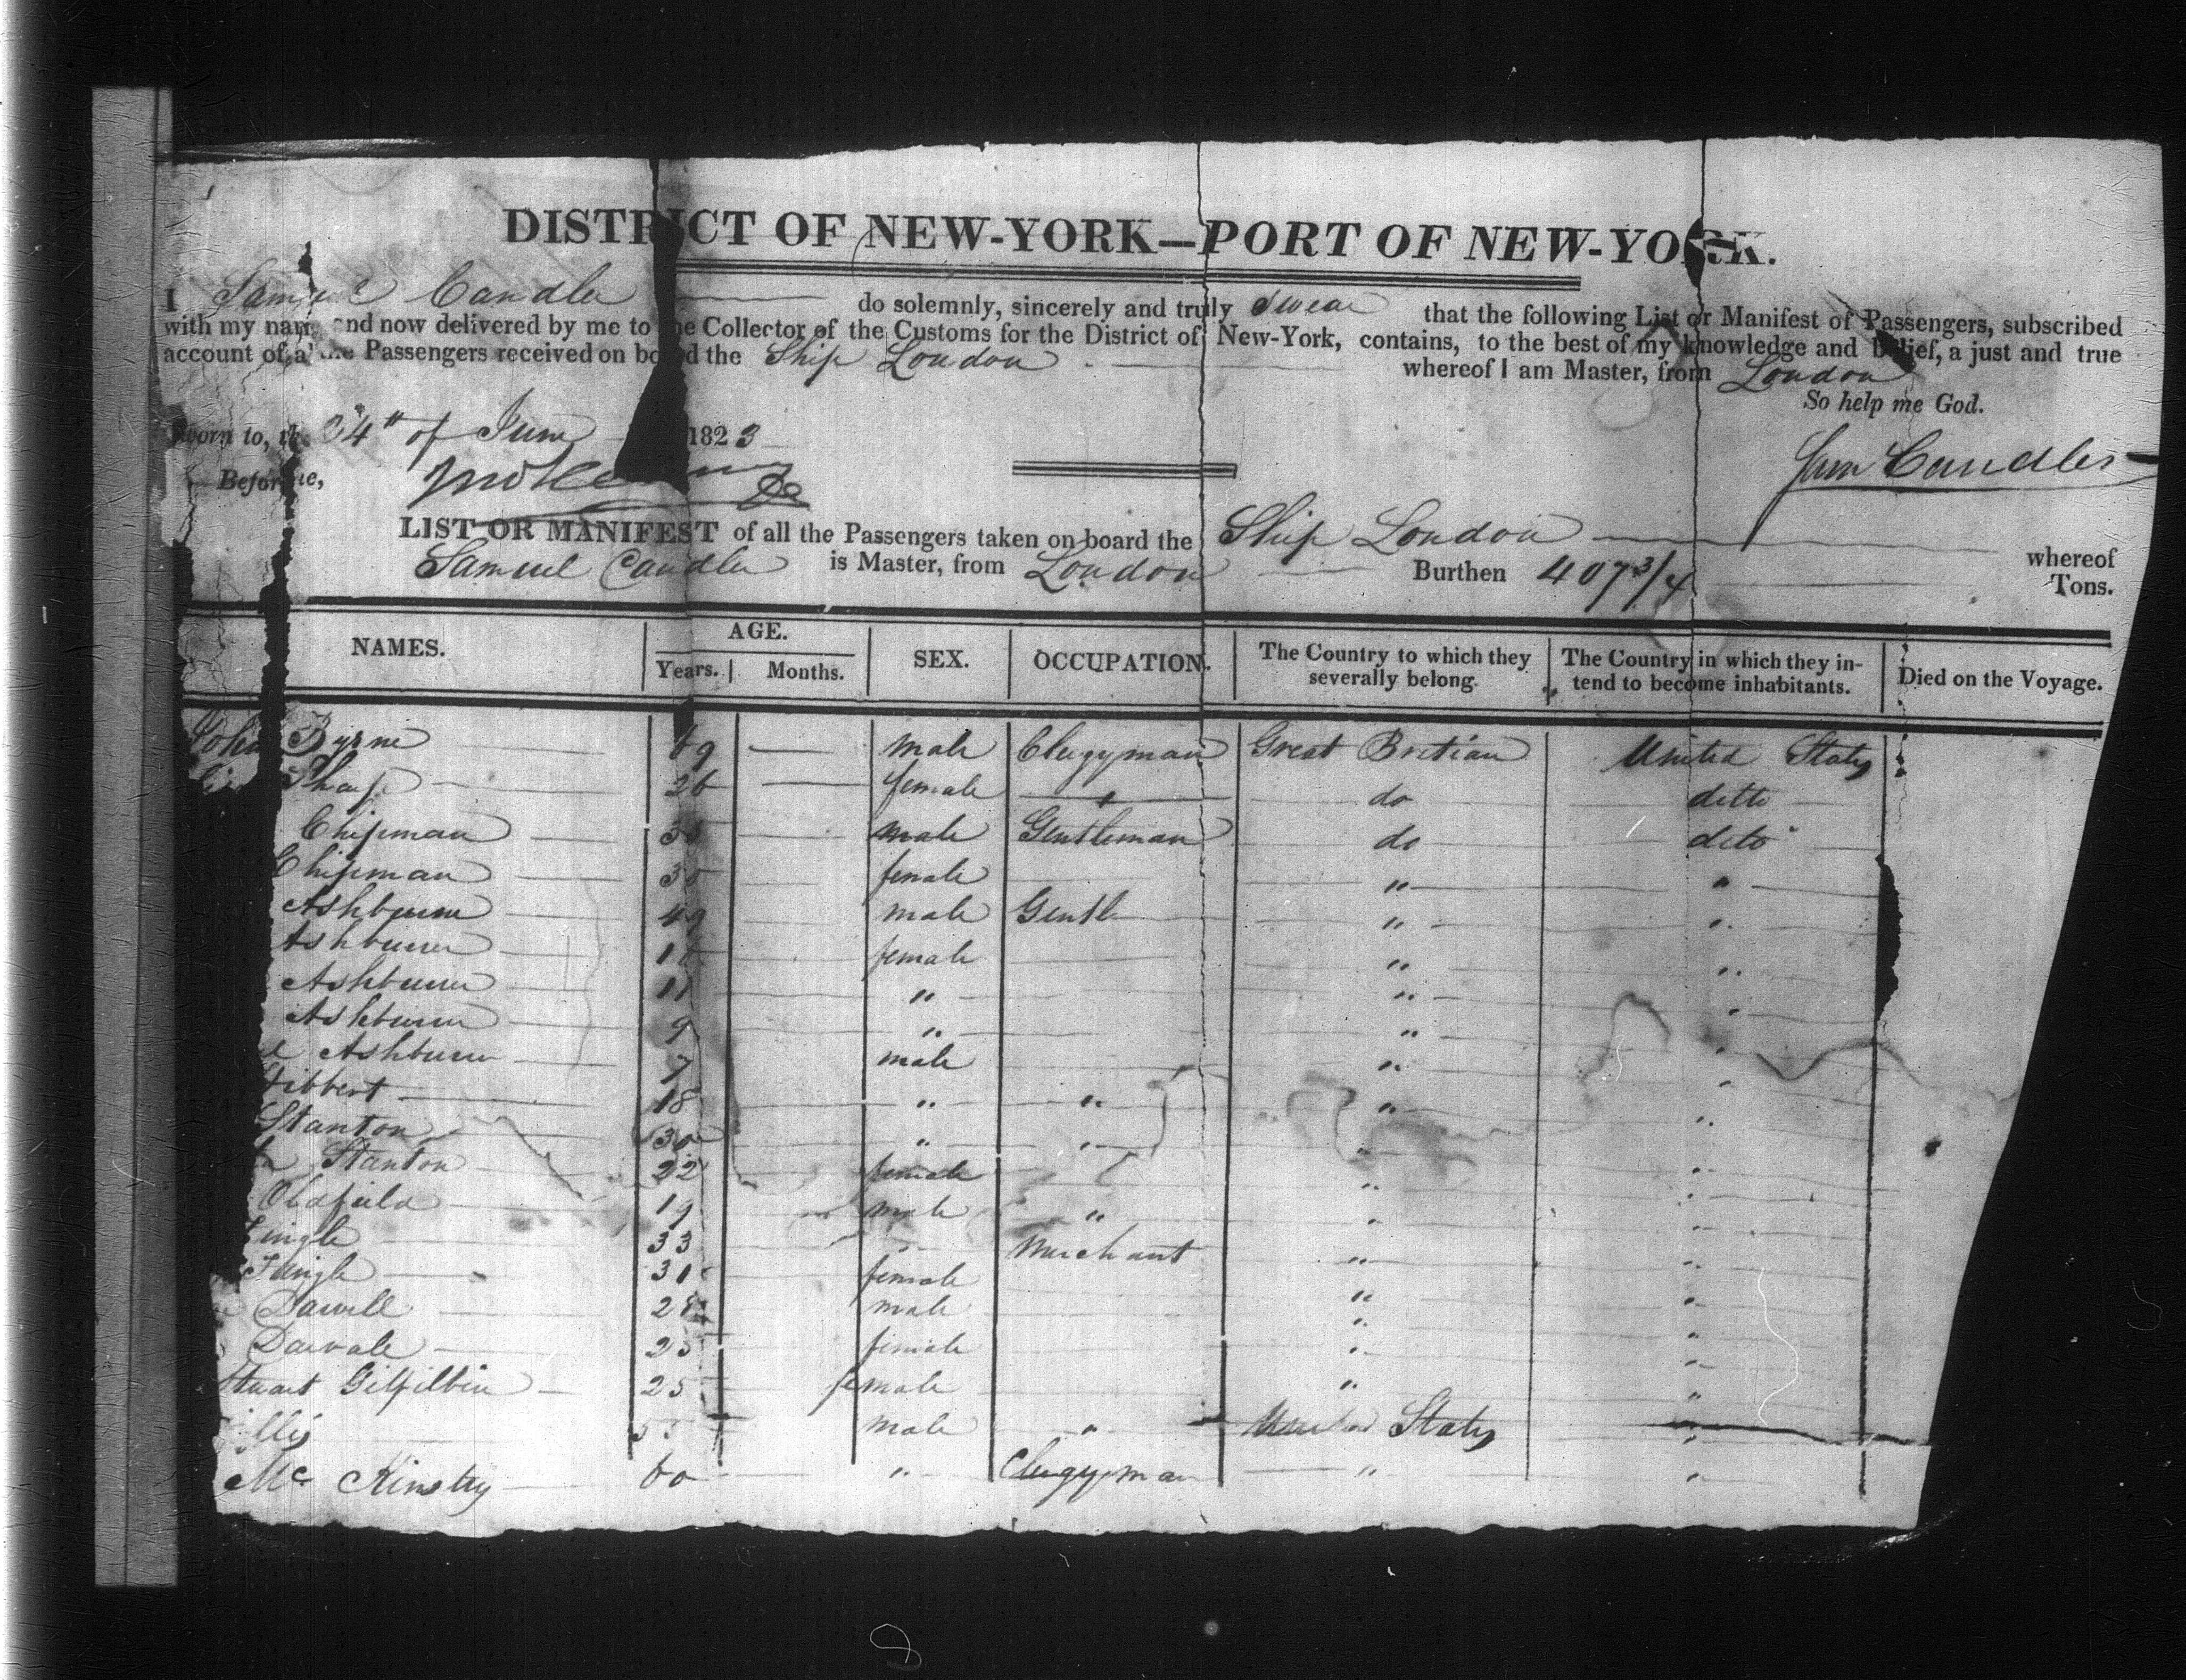 DISTRICT OF NEW-YORK—PORT OF NEW-YORK.
I Samuel Candler do solemnly, sincerely and truly Swear that the following List or Manifest of Passengers, subscribed
with my name and now delivered by me to the Collector of the Customs for the District of New-York, contains, to the best of my knowledge and belief, a just and true
account of all the Passengers received on board the Ship London whereof I am Master, from London
So help me God.
Sworn to, the 24th of June 1823
Before me,
Sam Candler
LIST OR MANIFEST of all the Passengers taken on board the Ship London whereof
Samuel Candler is Master, from London Burthen 407 3/4 Tons.
NAMES. AGE. Years. Months. SEX. OCCUPATION. The Country to which they severally belong. The Country in which they intend to become inhabitants. Died on the Voyage.
John Byrne 69 male Clergyman Great Britian United States
Sharp 26 female do ditto
Chipman 35 male Gentleman do ditto
Chipman 30 female " "
Ashburner 49 male Gentl " "
Ashburner female " "
Ashburner 11 " " "
Ashburner 9 " " "
Ashburner 7 male " "
Hibbert 18 " " " "
Stanton 30 " " " "
Stanton 22 female " "
Oldfield 19 male " " "
ingle 33 " Merchant " "
Tingle 31 female " "
28 male " "
25 female " "
Stuart Gilfillin 25 female " "
male " United States "
Mc Kinstry 60 " Clergyman " "